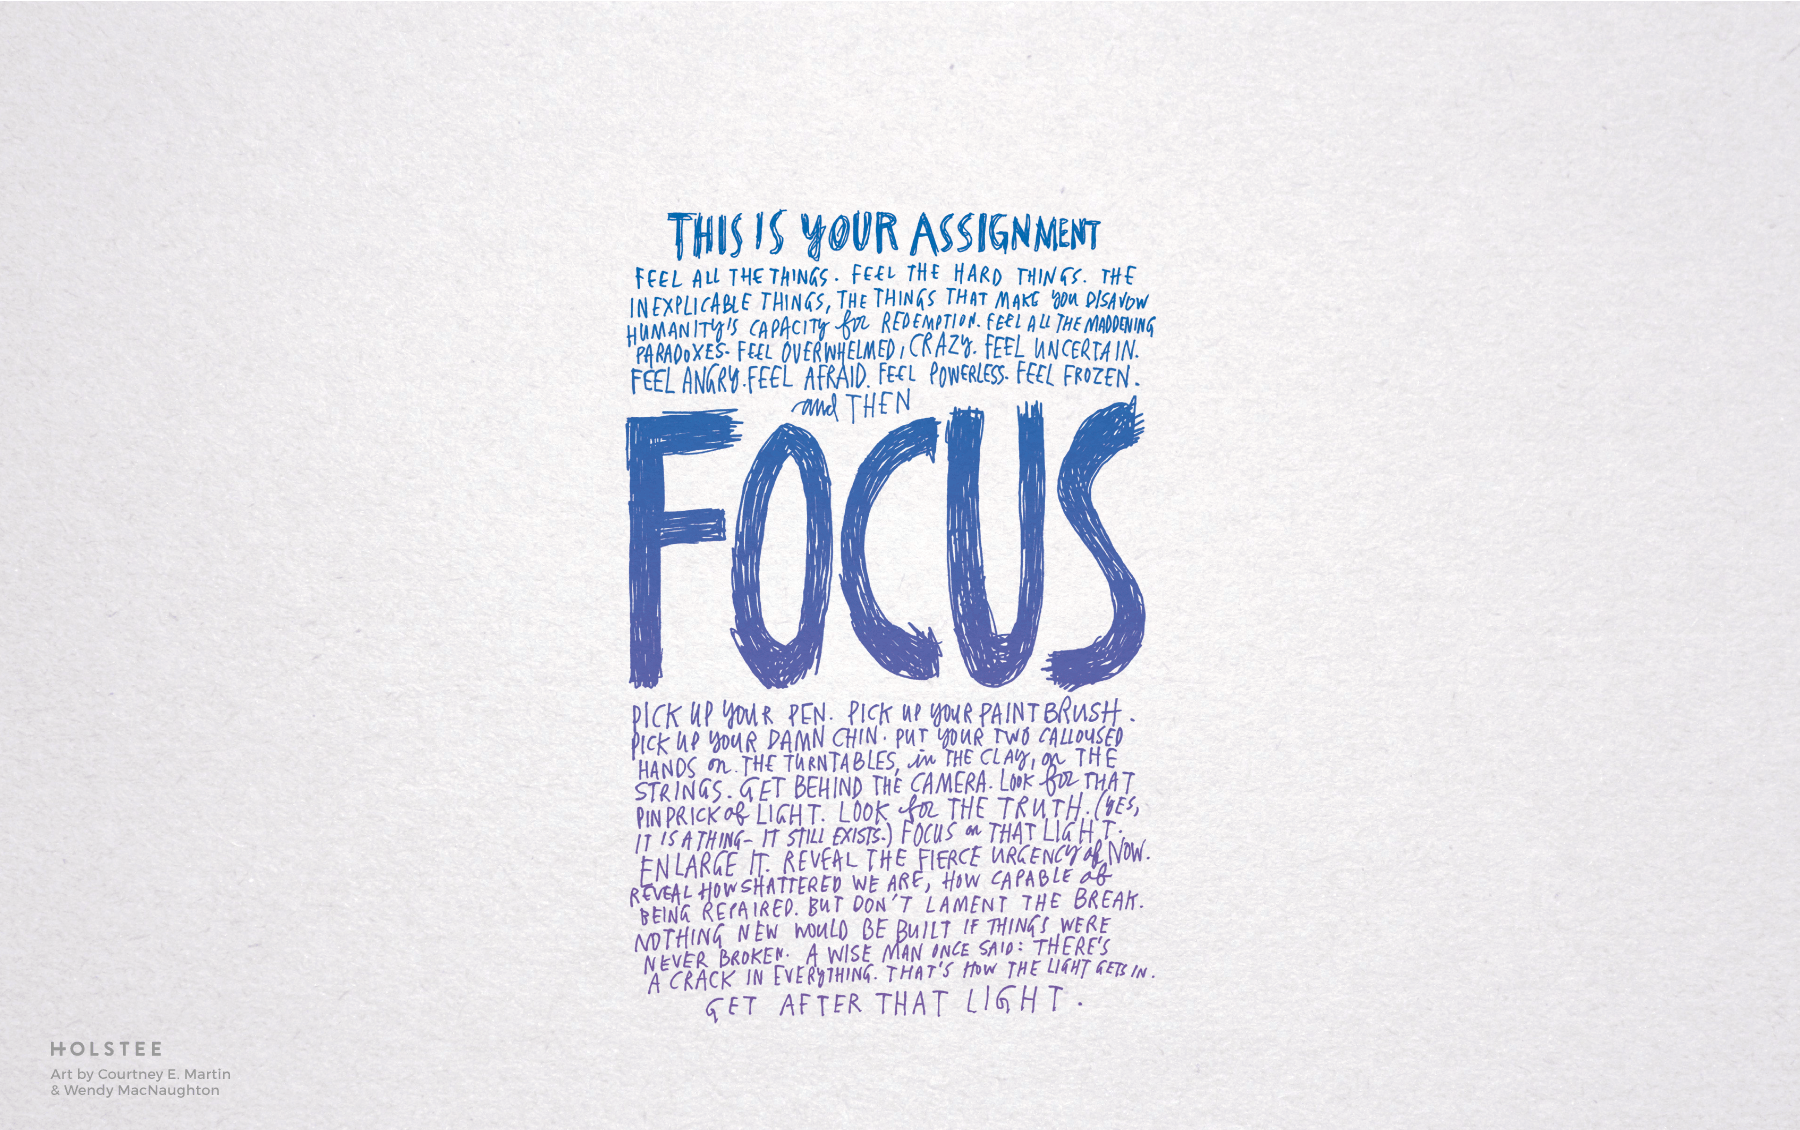 THIS IS YOUR ASSIGNMENT
FEEL ALL THE THINGS. FEEL THE HARD THINGS. THE
INEXPLICABLE THINGS, THE THINGS THAT MAKE YOU DISAVOW
HUMANITY'S CAPACITY for REDEMPTION. FEEL ALL THE MADDENING
PARADOXES. FEEL OVERWHELMED, CRAZY. FEEL UNCERTAIN.
FEEL ANGRY. FEEL AFRAID. FEEL POWERLESS. FEEL FROZEN.
and THEN
FOCUS
PICK UP YOUR PEN. PICK UP YOUR PAINTBRUSH.
PICK UP YOUR DAMN CHIN. PUT YOUR TWO CALLOUSED
HANDS on THE TURNTABLES, in THE CLAY, on THE
STRINGS. GET BEHIND THE CAMERA. LOOK for THAT
PINPRICK of LIGHT. LOOK for THE TRUTH. (YES,
IT IS A THING- IT STILL EXISTS.) FOCUS on THAT LIGHT.
ENLARGE IT. REVEAL THE FIERCE URGENCY of NOW.
REVEAL HOW SHATTERED WE ARE, HOW CAPABLE of
BEING REPAIRED. BUT DON'T LAMENT THE BREAK.
NOTHING NEW WOULD BE BUILT IF THINGS WERE
NEVER BROKEN. A WISE MAN ONCE SAID: THERE'S
A CRACK IN EVERYTHING. THAT'S HOW THE LIGHT GETS IN.
GET AFTER THAT LIGHT.
HOLSTEE
Art by Courtney E. Martin
& Wendy MacNaughton